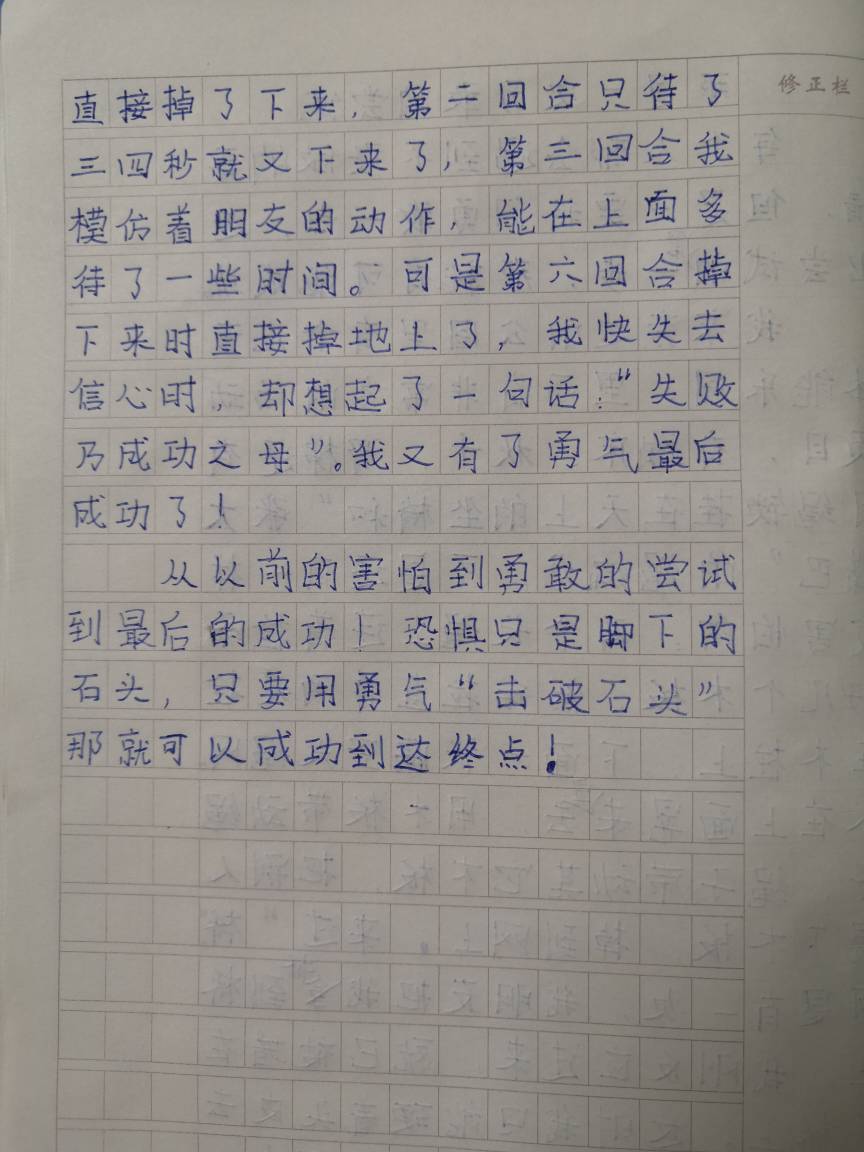 修正栏
直接掉了下来，第二回合只待了
三四秒就又下来了，第三回合我
模仿着朋友的动作，能在上面多
待了一些时间。可是第六回合掉
下来时直接掉地上了，我快失去
信心时，却想起了一句话：“失败
乃成功之母”。我又有了勇气最后
成功了！
从以前的害怕到勇敢的尝试
到最后的成功！恐惧只是脚下的
石头，只要用勇气“击破石头”
那就可以成功到达终点！